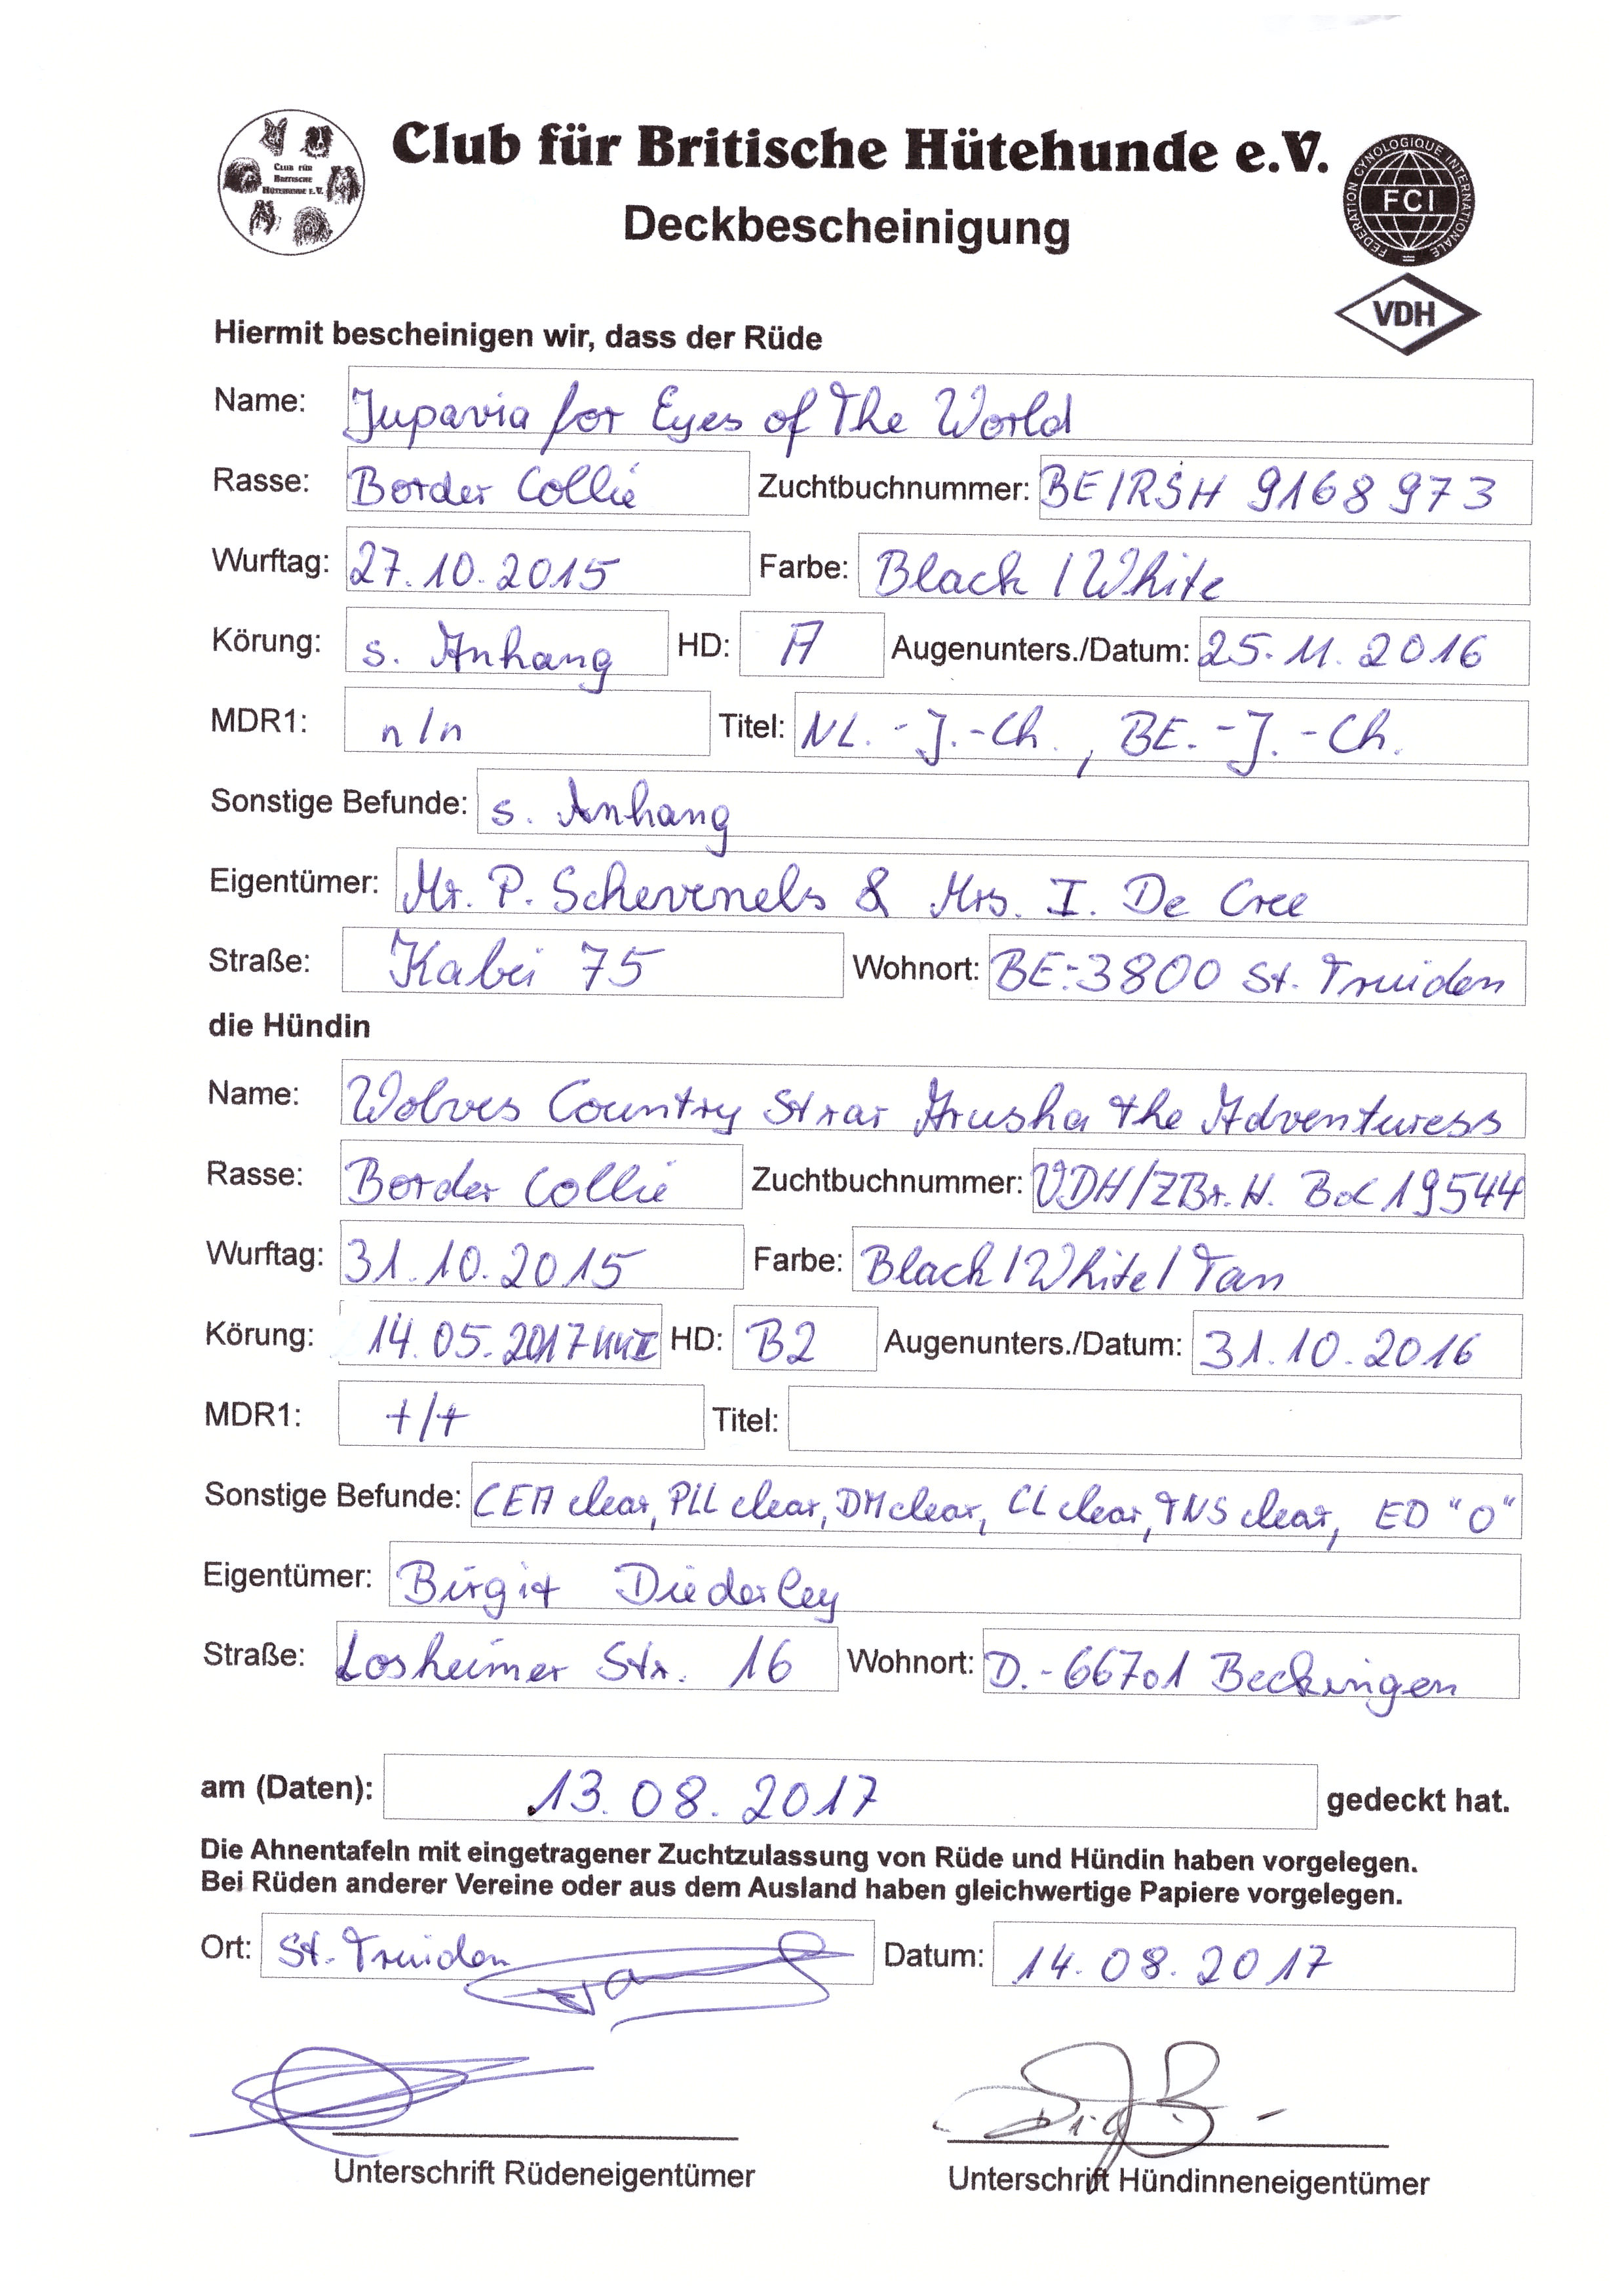 CLUB FÜR
BRITISCHE
HÜTEHUNDE E.V.
Club für Britische Hütehunde e.V.
FEDERATION CYNOLOGIQUE INTERNATIONALE
FCI
Deckbescheinigung
VDH
Hiermit bescheinigen wir, dass der Rüde
Name: Jupavia for Eyes of The World
Rasse: Border Collie Zuchtbuchnummer: BE/RSH 9168973
Wurftag: 27.10.2015 Farbe: Black / White
Körung: s. Anhang HD: A Augenunters./Datum: 25.11.2016
MDR1: n/n Titel: NL.-J.-Ch., BE.-J.-Ch.
Sonstige Befunde: s. Anhang
Eigentümer: Mr. P. Schevenels & Mrs. I. De Cree
Straße: Kabei 75 Wohnort: BE:3800 St. Truiden
die Hündin
Name: Wolves Country Strar Arusha the Adventuress
Rasse: Border Collie Zuchtbuchnummer: VDH/ZBr.H. BoC 19544
Wurftag: 31.10.2015 Farbe: Black / White / Tan
Körung: 14.05.2017 HD: B2 Augenunters./Datum: 31.10.2016
MDR1: +/+ Titel:
Sonstige Befunde: CEA clear, PLL clear, DM clear, CL clear, TNS clear, ED "0"
Eigentümer: Birgit Diederley
Straße: Losheimer Str. 16 Wohnort: D.-66701 Beckingen
am (Daten): 13.08.2017 gedeckt hat.
Die Ahnentafeln mit eingetragener Zuchtzulassung von Rüde und Hündin haben vorgelegen.
Bei Rüden anderer Vereine oder aus dem Ausland haben gleichwertige Papiere vorgelegen.
Ort: St. Truiden Datum: 14.08.2017
Unterschrift Rüdeneigentümer Unterschrift Hündinneneigentümer